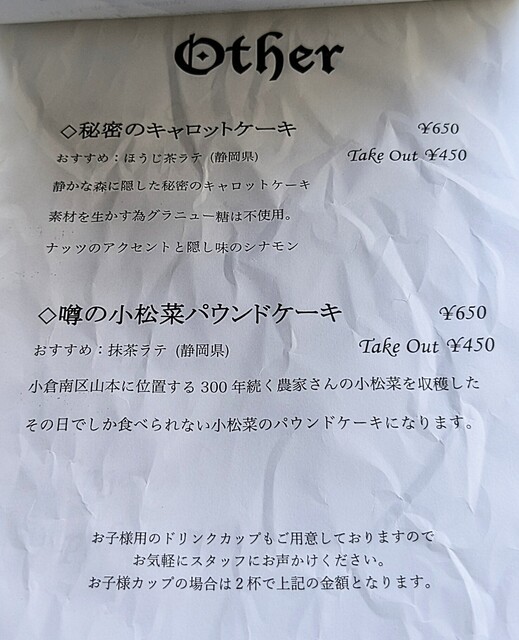 Other
◇秘密のキャロットケーキ ¥650
おすすめ:ほうじ茶ラテ (静岡県) Take Out ¥450
静かな森に隠した秘密のキャロットケーキ
素材を生かす為グラニュー糖は不使用。
ナッツのアクセントと隠し味のシナモン
◇噂の小松菜パウンドケーキ ¥650
おすすめ:抹茶ラテ (静岡県) Take Out ¥450
小倉南区山本に位置する 300 年続く農家さんの小松菜を収穫した
その日でしか食べられない小松菜のパウンドケーキになります。
お子様用のドリンクカップもご用意しておりますので
お気軽にスタッフにお声かけください。
お子様カップの場合は2杯で上記の金額となります。